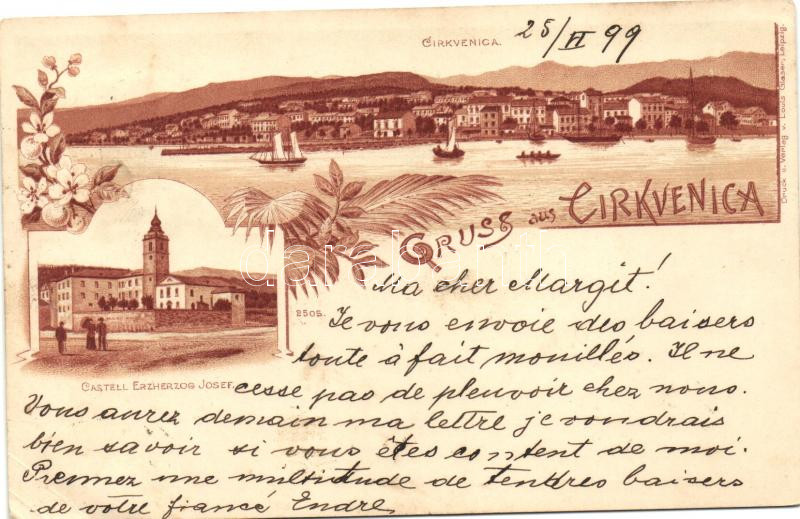 CIRKVENICA.
25/VI 99
Druck u. Verlag v. Louis Glaser, Leipzig.
GRUSS aus CIRKVENICA
darabanth
2505.
CASTELL ERZHERZOG JOSEF.
Ma cher Margit!
Je vous envoie des baisers
toute à fait mouillés. Il ne
cesse pas de pleuvoir chez nous.
Vous aurez demain ma lettre je voudrais
bien savoir si vous êtes content de moi.
Prennez une multitude de tendres baisers
de votre fiancé Endre